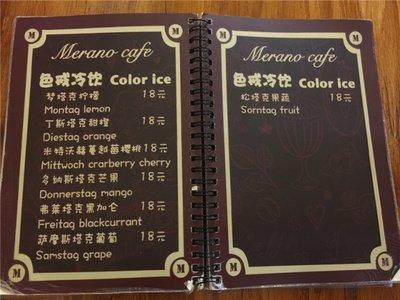 M M
Merano cafe
色戒冷饮 Color ice
琴塔克柠檬 18元
Montag lemon
丁斯塔克甜橙 18元
Diestag orange
米特沃赫蔓越莓樱桃 18元
Mittwoch crarberry cherry
多纳斯塔克芒果 18元
Donnerstag mango
弗莱塔克黑加仑 18元
Freitag blackcurrant
萨摩斯塔克葡萄 18元
Samstag grape
M M
M M
Merano cafe
色戒冷饮 Color ice
松塔克果蔬 18元
Sorntag fruit
M M